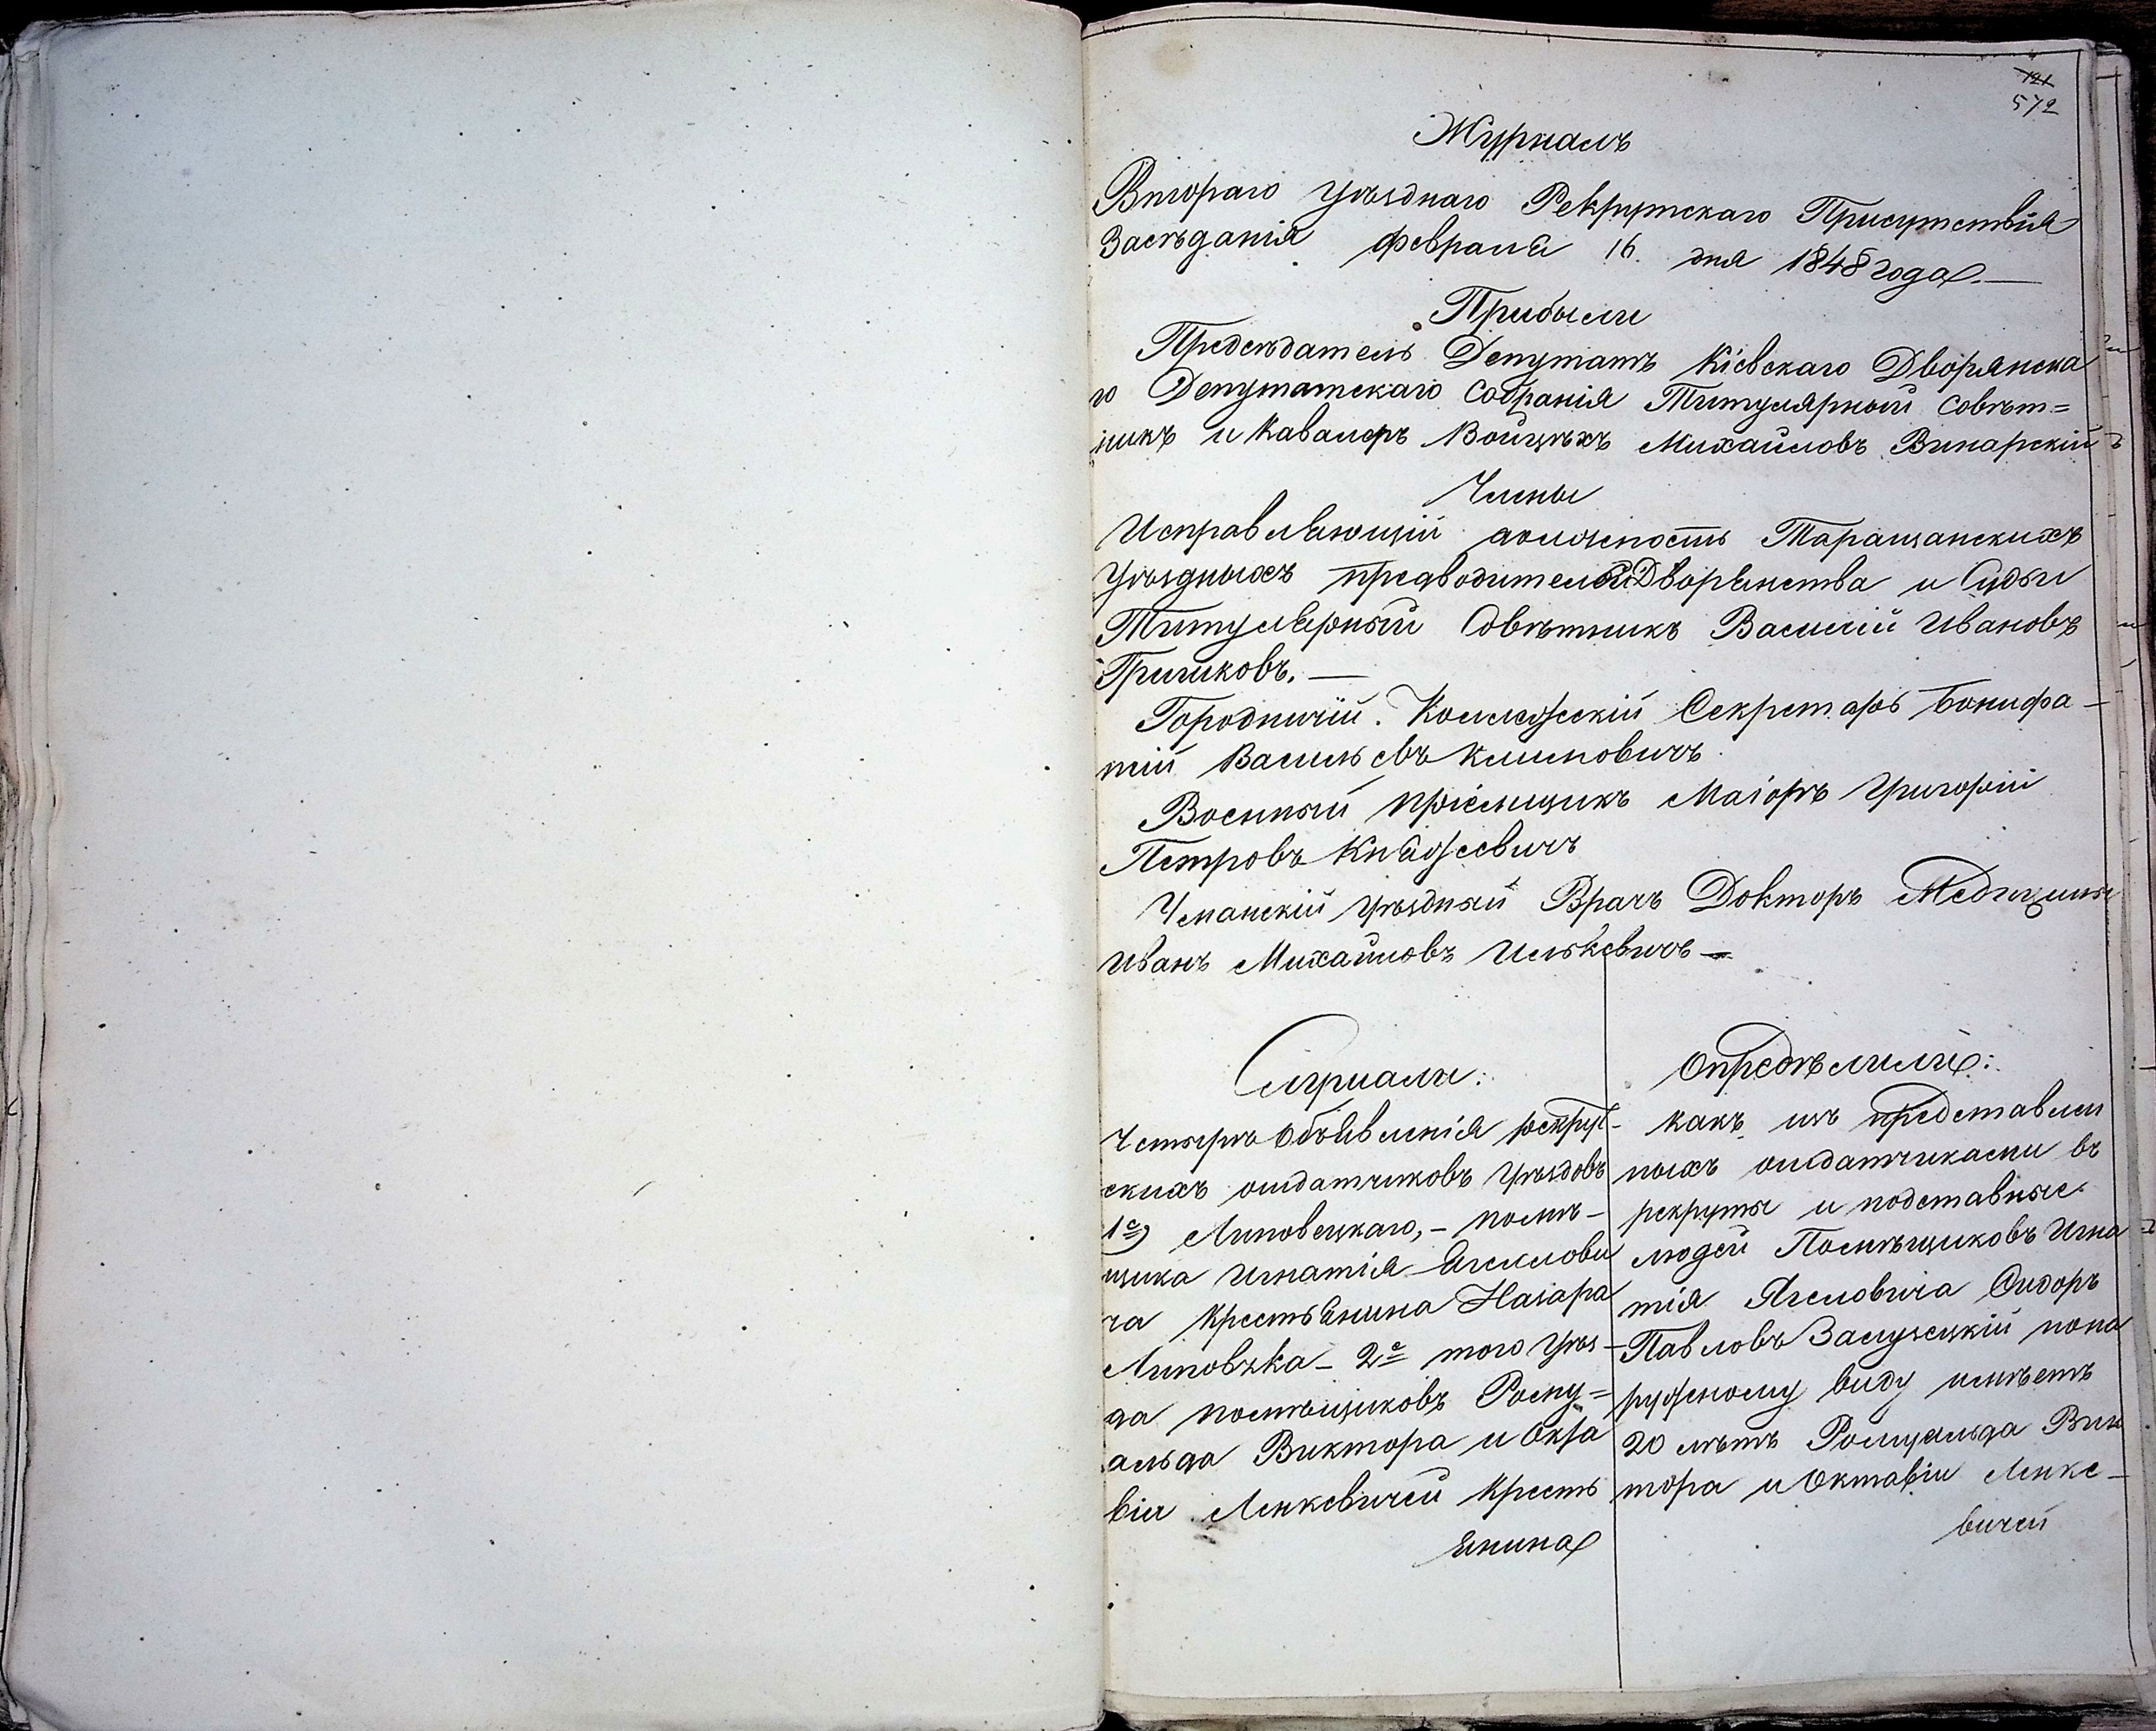 121
572
Журналъ
Втораго Уѣзднаго Рекрутскаго Присутствія
Засѣданія февраля 16 дня 1848 года.—
Прибыли
Предсѣдатель Депутатъ Кіевскаго Дворянска
го Депутатскаго Собранія Титулярный Совѣт=
никъ и Кавалеръ Войцѣхъ Михайловъ Винарскій
Члены
Исправляющій должность Таращанскихъ
Уѣздныхъ предводителей Дворянства и Судьи
Титулярный Совѣтникъ Василій Ивановъ
Гришковъ.—
Городничій. Коллежскій Секретарь Бонифа-
тій Васильевъ Климовичъ
Военный пріемщикъ Маіоръ Григорій
Петровъ Княжевичъ
Уманскій Уѣздный Врачъ Докторъ Медицины
Иванъ Михайловъ Илькевичъ —
Слушали:
Четыре Объявленія рекрут-
скихъ отдатчиковъ Уѣздовъ
1е) Липовецкаго,- помѣ-
щика Игнатія Ягелови
ча Крестьянина Назара
Липовъка - 2е того Уѣз-
да помѣщиковъ Рому=
альда Виктора и Окта
віи Ленкевичей Кресть
янина
Опредѣлили:
какъ изъ представлен
ныхъ отдатчиками въ
рекруты и подставные
людей Помѣщиковъ Игна
тія Ягеловича Сидоръ
Павловъ Залужскій по на
ружному виду имѣетъ
20 лѣтъ Ромуальда Вик
тора и Октавіи Ленке-
вичей